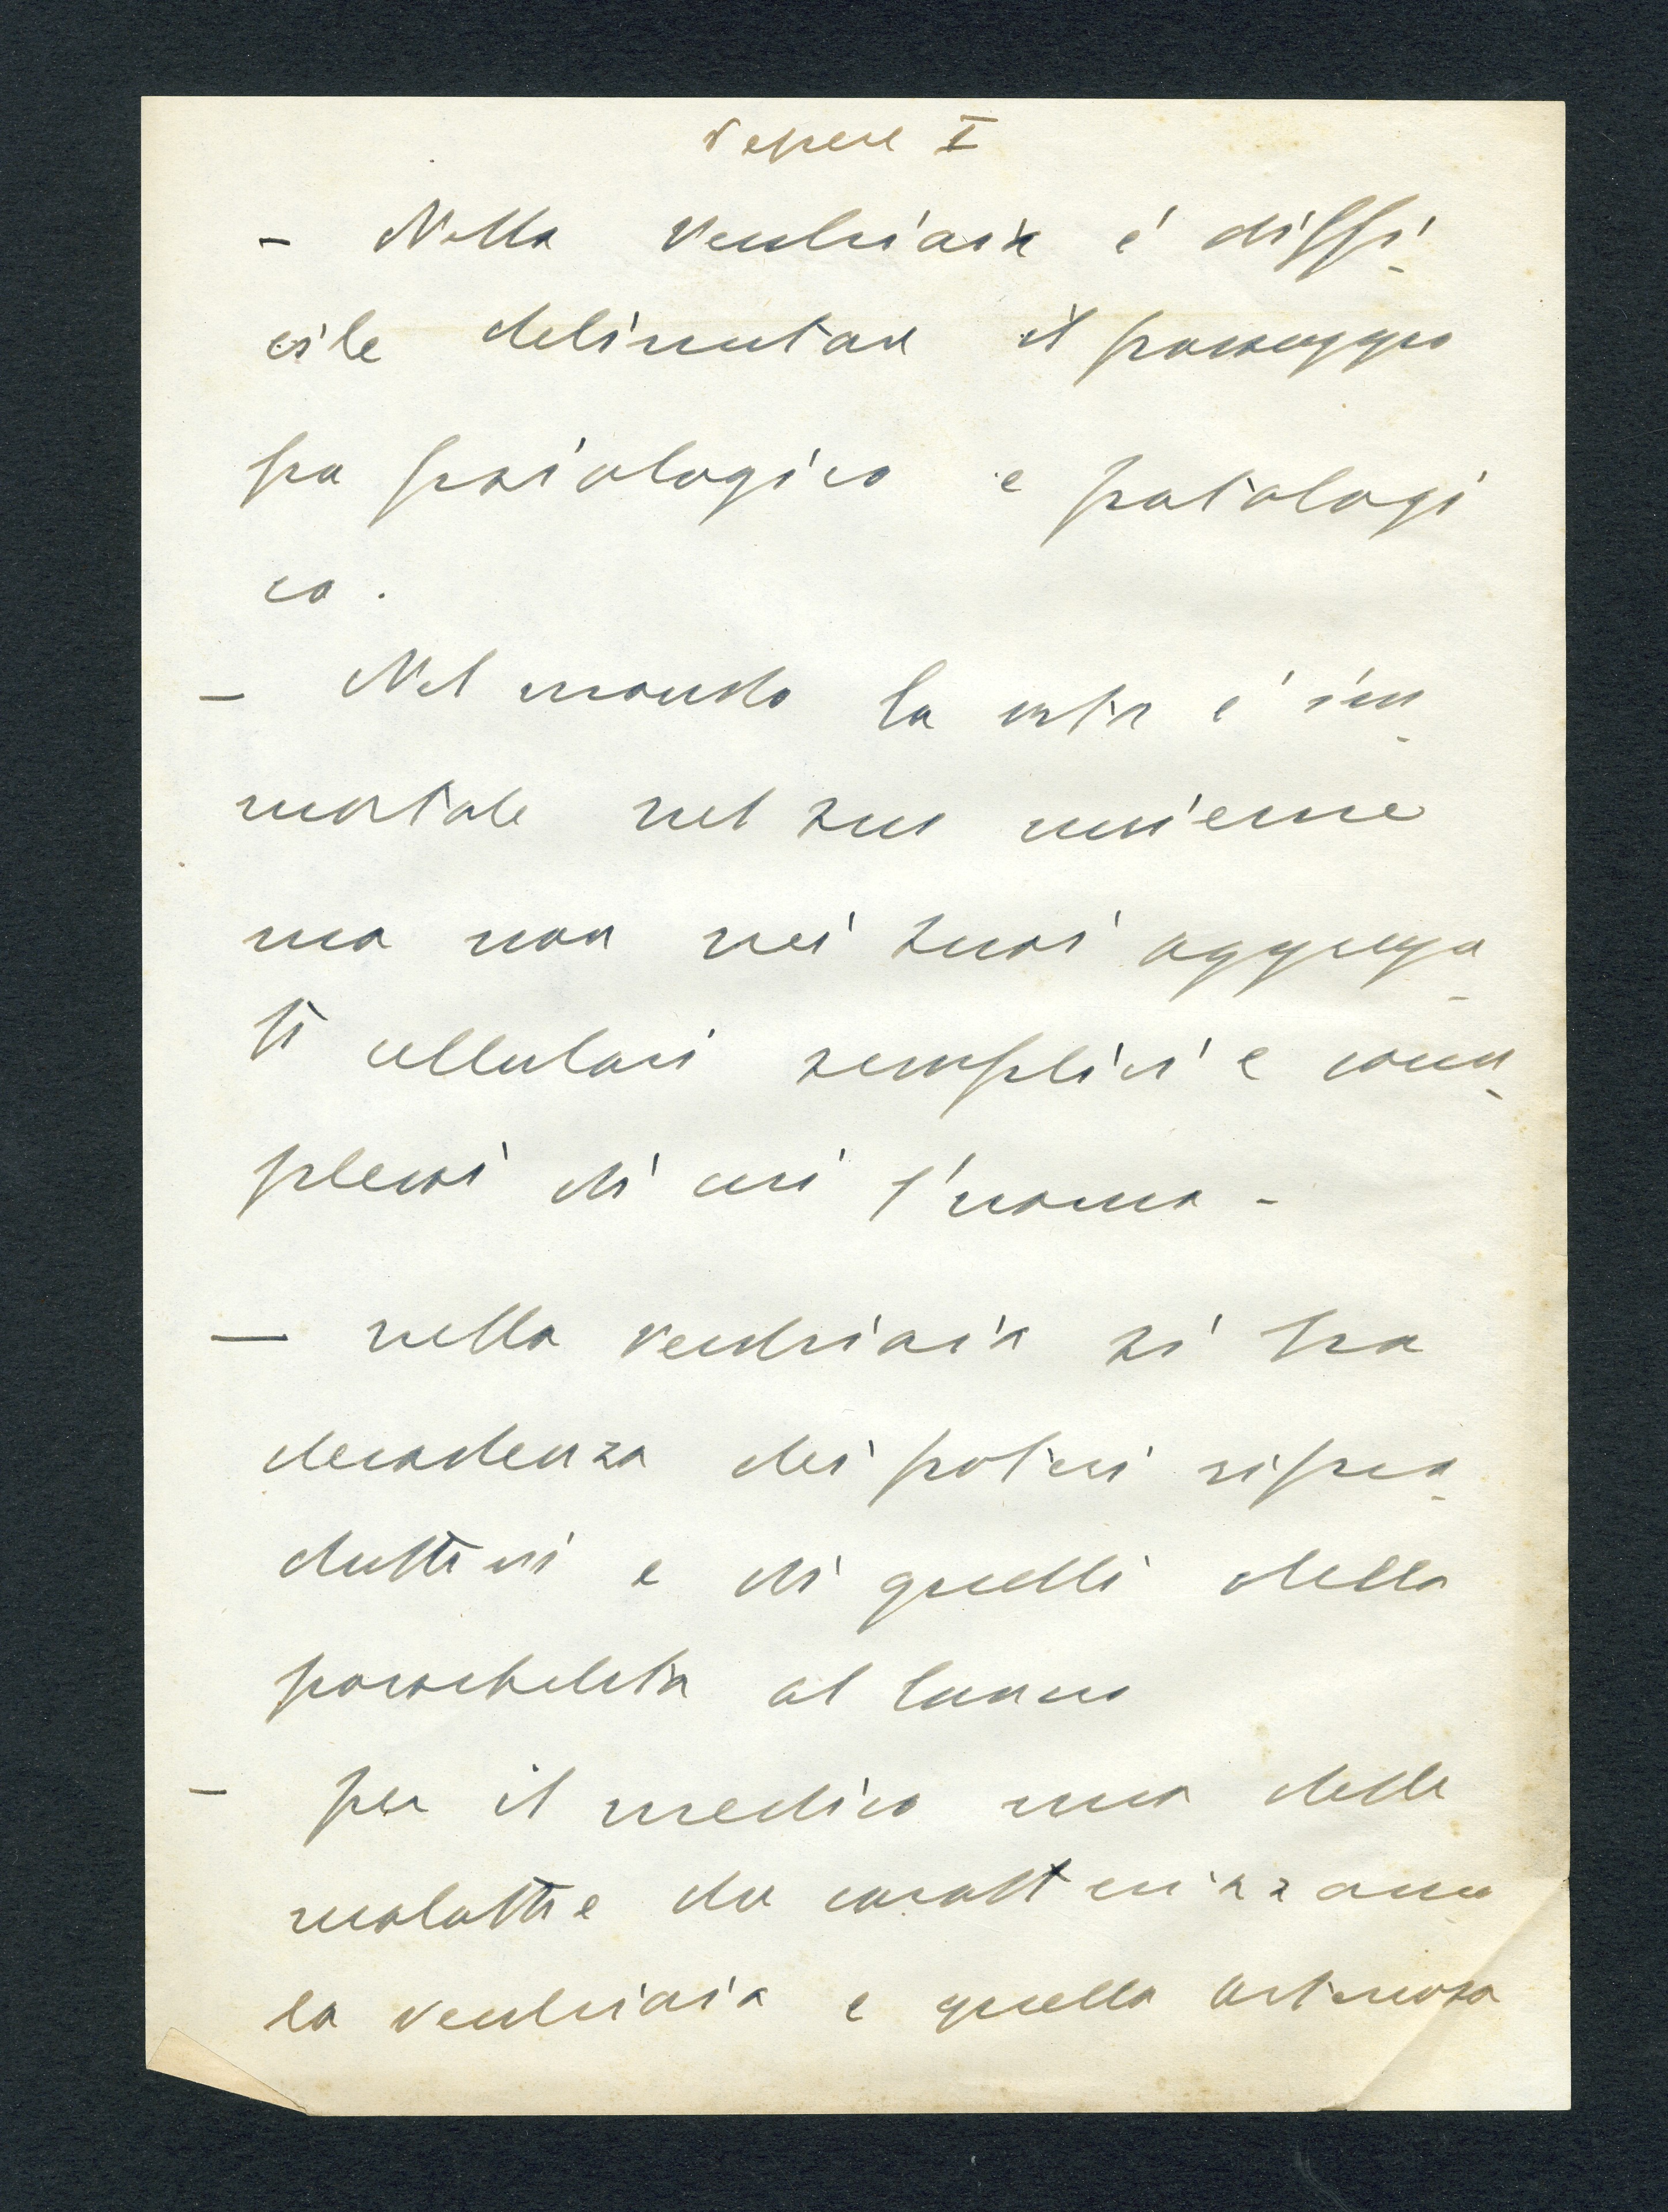 Vepere I
- Nella vecchiaia é diffi-
cile delimitare il passaggio
fra fisiologico e patologi
co.
- Nel mondo la vita é im-
mortale nel suo insieme
ma non nei suoi aggrega-
ti cellulari semplici e com-
plessi di cui l'uomo -
- nella vecchiaia si ha
decadenza dei poteri ripro-
duttivi e di quelli della
possibilità al lavoro
- per il medico una delle
malattie che caratterizzano
la vecchiaia e quella